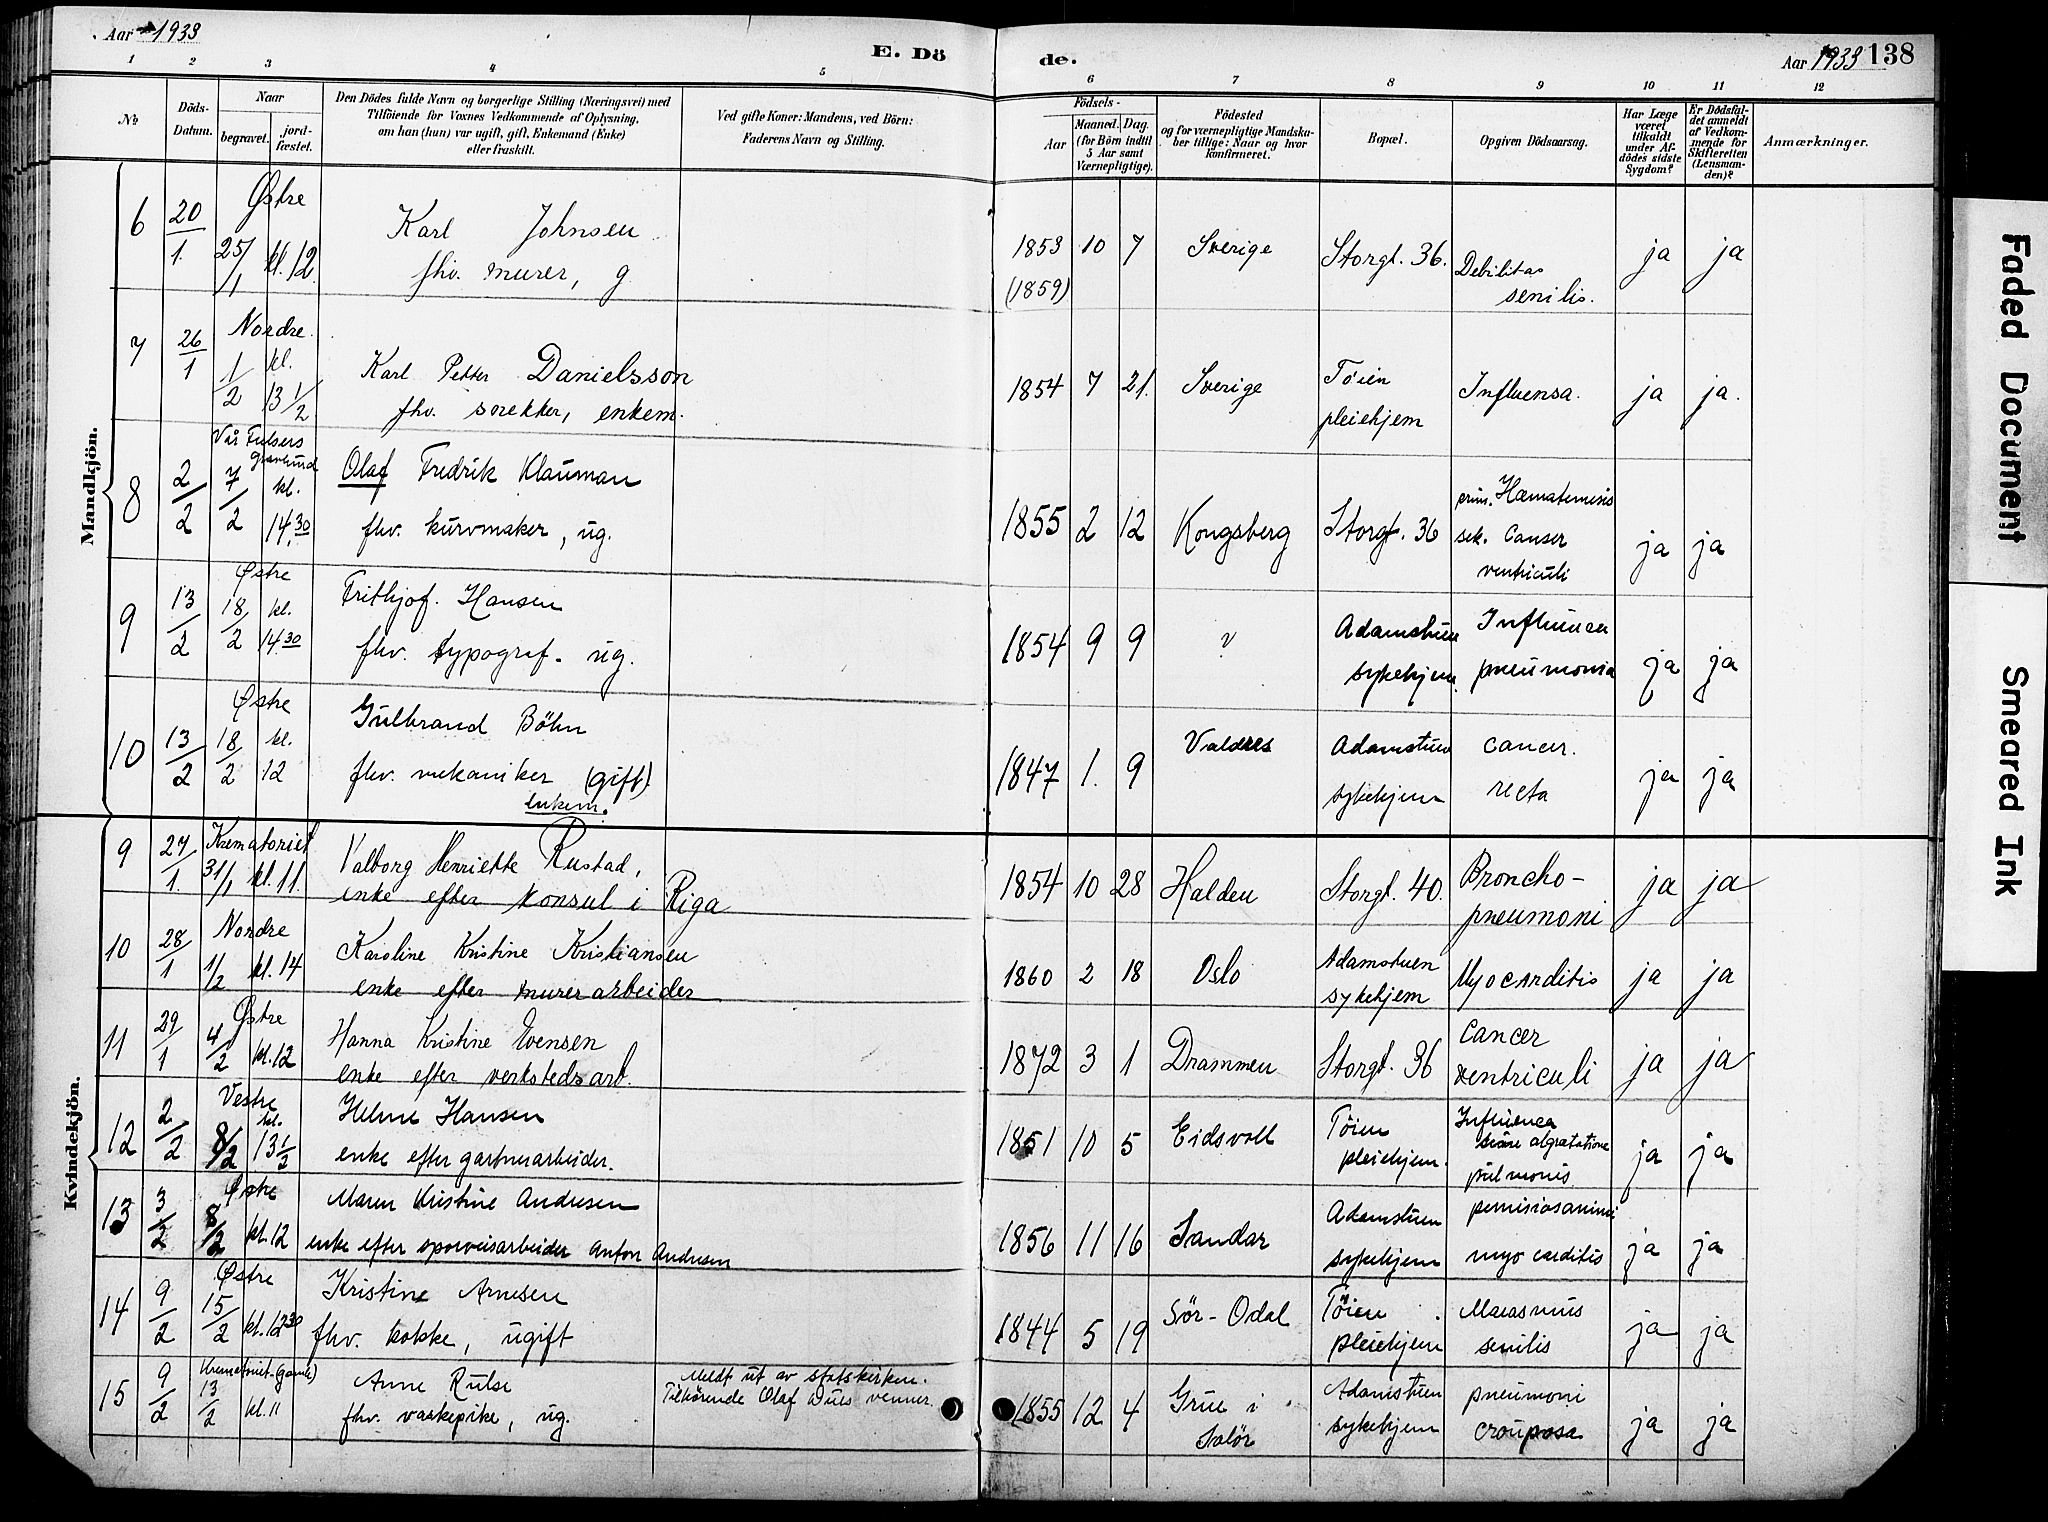 Aar 1933
E. Dö
de.
Aar 1933 138
1 2 3 4 5 6 7 8 9 10 11 12
No
Döds-Datum.
Naar
begravet.
jord-fæstet.
Den Dödes fulde Navn og borgerlige Stilling (Næringsvei) med
Tilföiende for Voxnes Vedkommende af Oplysning,
om han (hun) var ugift, gift, Enkemand (Enke)
eller fraskilt.
Ved gifte Koner: Mandens, ved Börn:
Faderens Navn og Stilling.
Födsels-
Aar
Maaned. Dag
(for Börn indtil
5 Aar samt
Værnepligtige).
Födested
og for værnepligtige Mandska-
ber tillige: Naar og hvor
konfirmeret.
Bopæl.
Opgiven Dödsaarsag.
Har Læge
været
tilkaldt
under Af-
dödes sidste
Sygdom?
Er Dödsfal-
det anmeldt
af Vedkom-
mende for
Skifteretten
(Lensman-
den)?
Anmærkninger.
Mandkjön.
6 20/1 Østre 25/1 kl. 12
Karl Johnsen
fhv. murer, g
1853 10 7 Sverige Storgt. 36. Debilitas ja ja
(1859) senilis.
7 26/1 Nordre 1/2 kl. 13 1/2
Karl Petter Danielsson
fhv. snekker, enkem.
1854 7 21. Sverige Töien Influensa. ja ja.
pleiehjem
8 2/2 Vår Frelsers gravlund 7/2 kl. 14.30
Olaf Fredrik Klauman
fhv. kurvmaker, ug.
1855 2 12 Kongsberg Storgt. 36 prim. Hæmatemesis ja ja
sek. Canser
ventriculi
9 13/2 Østre 18/2 kl. 14.30
Frithjof. Hansen
fhv. typograf. ug.
1854 9 9 ? Adamstuen Influensa ja ja
sykehjem. pneumonia
10 13/2 Østre 18/2 kl. 12
Gulbrand Böhn
fhv. mekaniker (gift)
enkem.
1847 1. 9 Valdres Adamstuen cancer. ja ja
sykehjem recta
Kvindekjön.
9 27/1 Krematoriet 31/1 kl. 11.
Valborg Henriette Rustad,
enke efter konsul i Riga
1854 10 28 Halden Storgt. 40. Broncho- ja ja
pneumoni
10 28/1 Nordre 1/2 kl. 14
Karoline Kristine Kristiansen
enke efter murerarbeider
1860 2 18 Oslo Adamstuen Myocarditis ja ja
sykehjem
11 29/1 Østre 4/2 kl. 12
Hanna Kristine Evensen
enke efter verkstedsarb.
1872 3 1 Drammen Storgt. 36 Cancer ja ja
ventriculi
12 2/2 Vestre 8/2 kl. 13 1/2
Helene Hansen
enke efter gartnerarbeider.
1851 10 5 Eidsvoll Töien Influensa ja ja
pleiehjem. pulmonis
13 3/2 Østre 8/2 kl. 12
Maren Kristine Andresen
enke efter sporveisarbeider Anton Andresen
1856 11 16 Sandar Adamstuen ja ja
sykehjem myo carditis
14 9/2 Østre 15/2 kl. 12 30
Kristine Arnesen
fhv. kokke, ugift
1844 5 19 Sör-Odal Töien Marasmus ja ja
pleiehjem senilis
15 9/2 Krematoriet (gamle) 13/2 kl. 11
Anne Rulse
fhv. vaskepike, ug.
Meldt ut av statskirken.
Tilhörende Olaf Duls venner.
1855 12 4 Grue i Adamstuen pneumoni ja ja
Solör sykehjem crouposa
Faded Document
Smeared Ink